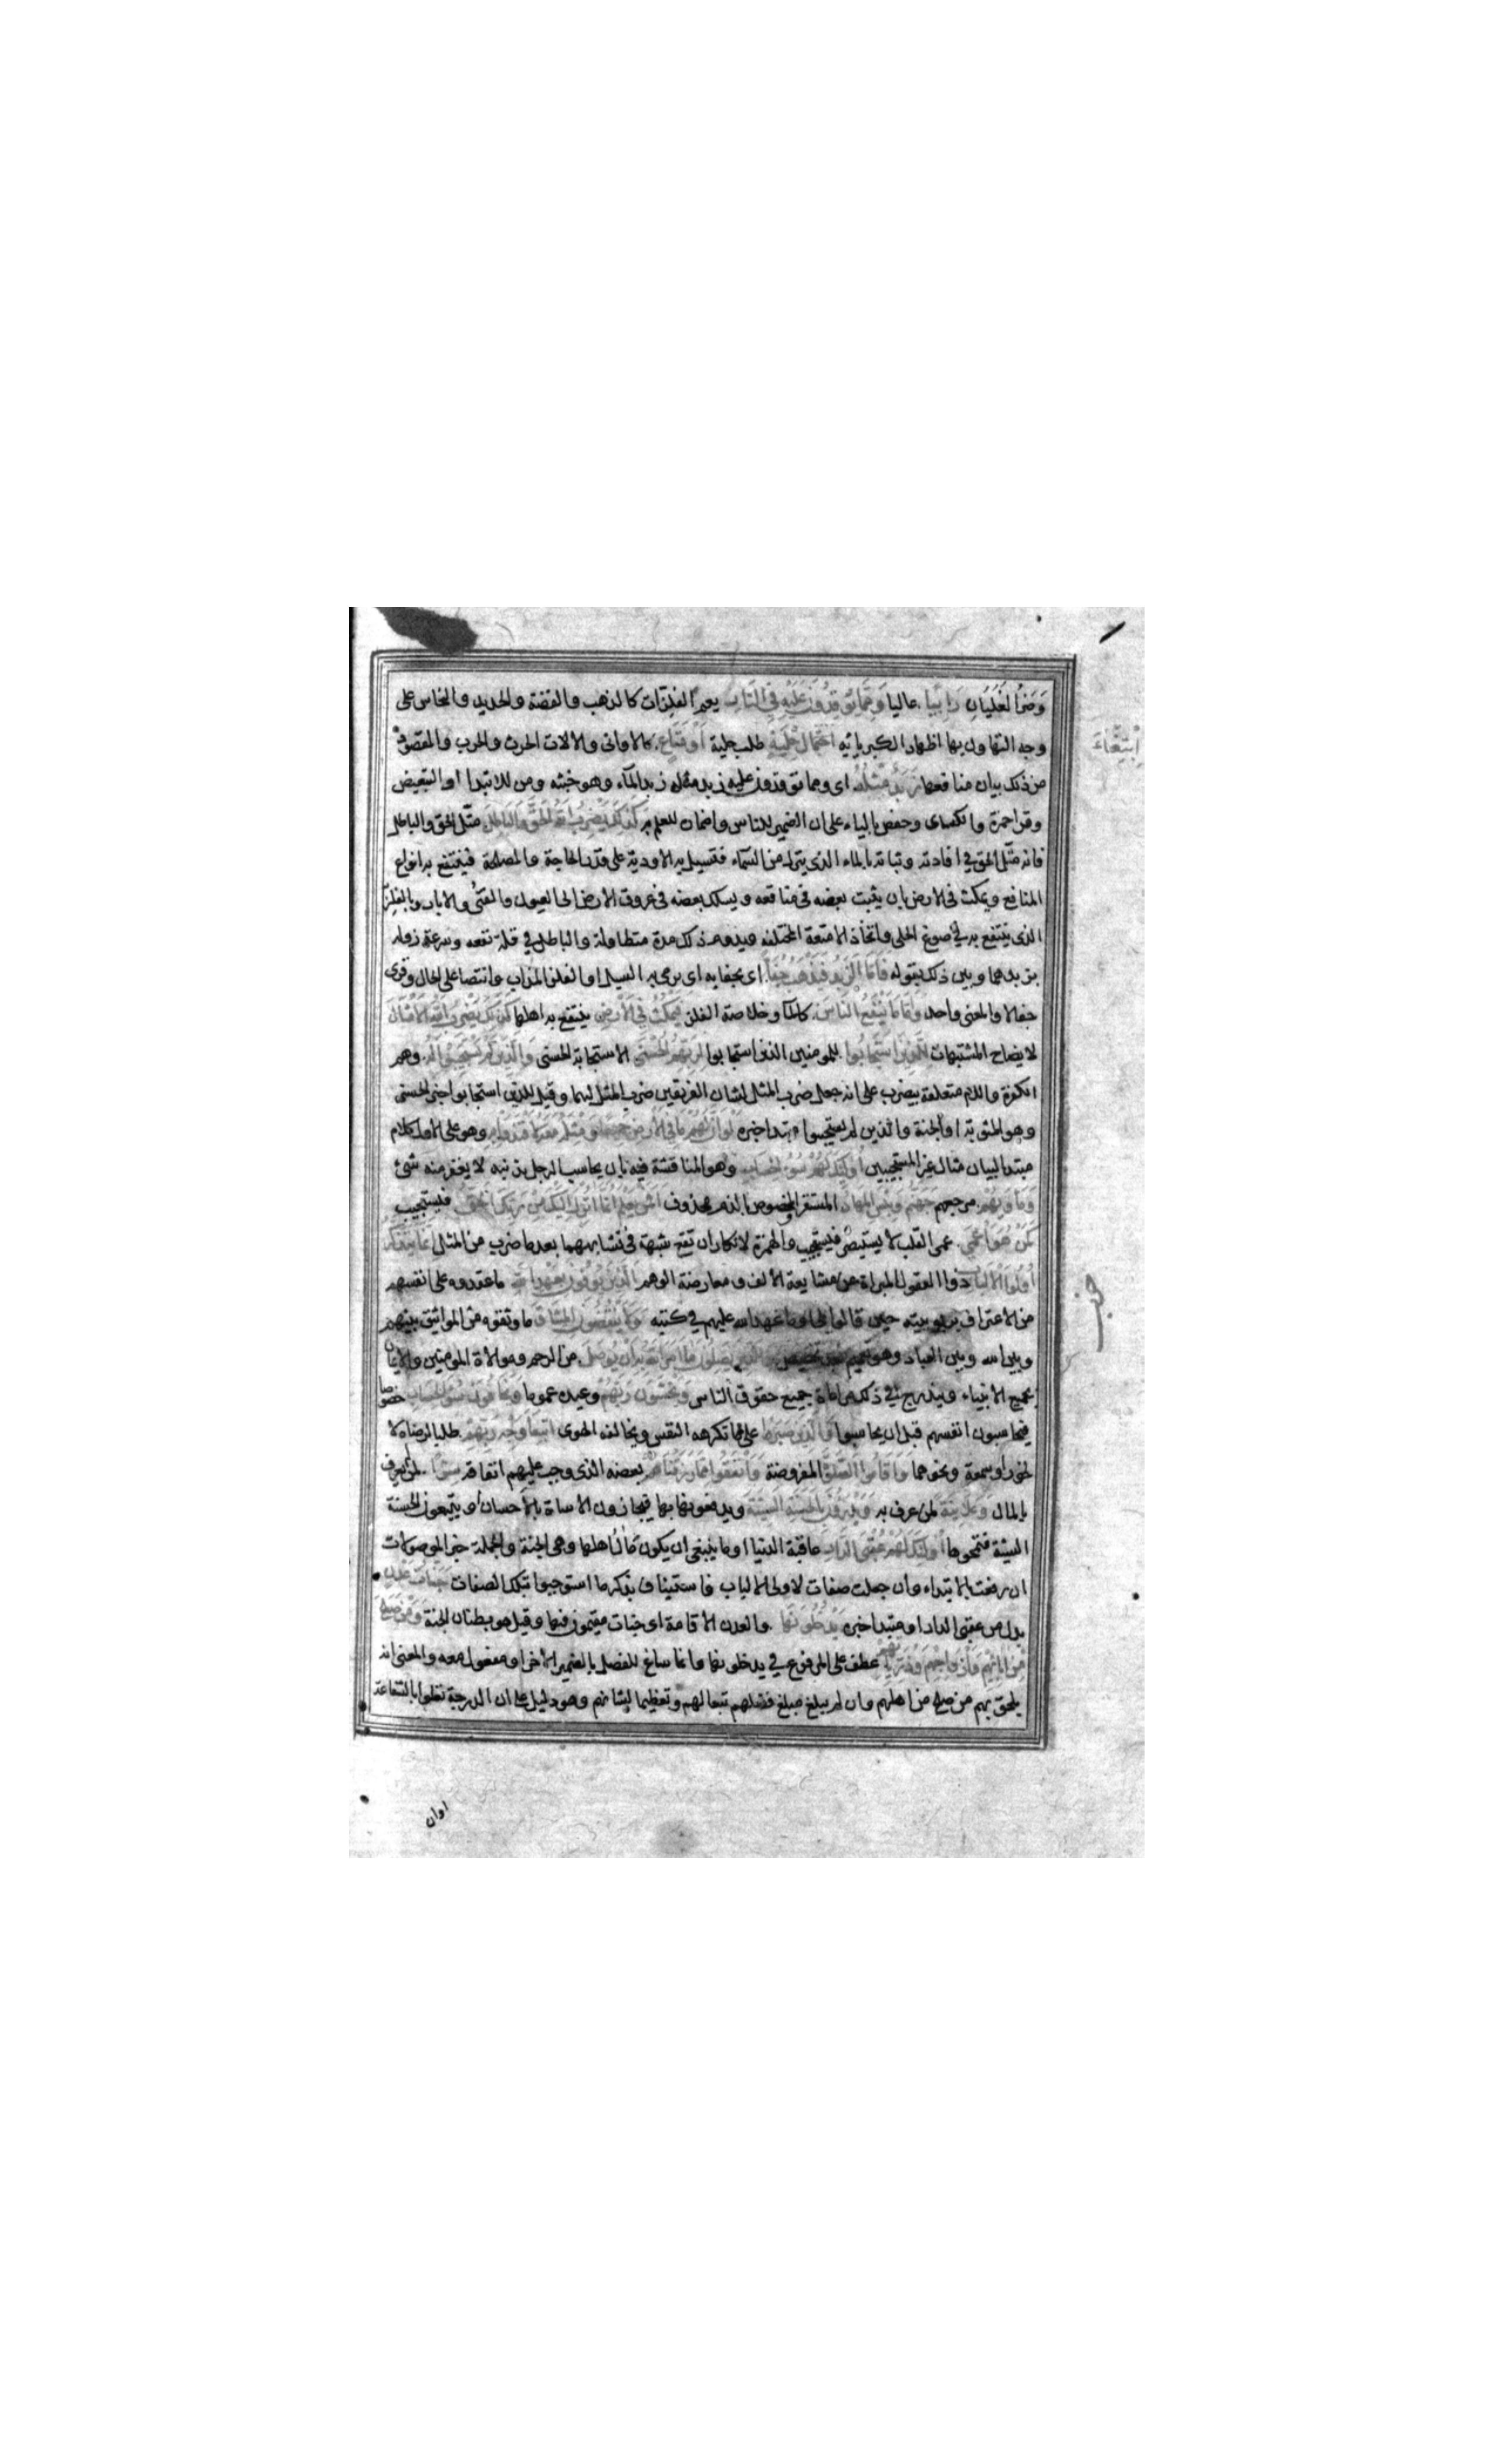 وَضَرُ الغَلَيَانِ رَابِيًا عاليا وَمِمَّا تُوقِدُونَ عَلَيْهِ فِي النَّارِ يعم الفلزات كالذهب والفضة والحديد والنحاس على
ابْتِغَاءَ
وجه التهاون بها اظهارا لكبريائه ابْتِغَاءَ حِلْيَةٍ طلب حلية أَوْ مَتَاعٍ كالاوانى والالات الحرث والحرب والمقصود
من ذلك بيان منافعها زَبَدٌ مِثْلُهُ اى ومما توقدون عليه زبد مثله زبد الماء وهو خبثه ومن للابتدا او التبعيض
وقرا حمزة والكساى وحفص بالياء على ان الضمير للناس واضمان للعلم به كَذَلِكَ يَضْرِبُ اللَّهُ الْحَقَّ وَالْبَاطِلَ مثل الحق والباطل
فانه مثل الحق في افادته وثباته بالماء الذى ينزل من السماء فتسيل به الاودية على قدر الحاجة والمصلحة فينتفع به انواع
المنافع ويمكث فى الارض بان يثبت بعضه فى مناقعه ويسلك بعضه فى عروق الارض الى العيون والقنى والابار وبالفلز
الذى ينتفع به في صوغ الحلى واتخاذ الامتعة المختلفه ويدوم ذلك مدة متطاولة والباطل في قلة نفعه وسرعة زواله
بزبدهما وبين ذلك بقوله فَأَمَّا الزَّبَدُ فَيَذْهَبُ جُفَاءً اى يجفا به اى يرمى به السيل او الفلز المذاب وانتصا على الحال وقرى
جفالا والمعنى واحد وَأَمَّا مَا يَنْفَعُ النَّاسَ كالماء وخلاصة الفلز فَيَمْكُثُ فِي الْأَرْضِ ينتفع به اهلها كَذَلِكَ يَضْرِبُ اللَّهُ الْأَمْثَالَ
لايضاح المشتبهات لِلَّذِينَ اسْتَجَابُوا للمومنين الذين استجابوا لِرَبِّهِمُ الْحُسْنَى الاستجابة الحسنى وَالَّذِينَ لَمْ يَسْتَجِيبُوا لَهُ وهم
الكفرة واللام متعلقة بيضرب على انه جعل ضرب المثل لشان الفريقين ضرب المثل لهما وقيل للذين استجابوا خبر الحسنى
وهو المثوبة او الجنة والذين لم يستجيبوا مبتدا خبره لَوْ أَنَّ لَهُمْ مَا فِي الْأَرْضِ جَمِيعًا وَمِثْلَهُ مَعَهُ لَافْتَدَوْا بِهِ وهو على الاول كلام
مبتدا لبيان مثال غير المستجيبين أُولَئِكَ لَهُمْ سُوءُ الْحِسَابِ وهو المناقشة فيه بان يحاسب الرجل بذنبه لا يغفر منه شئ
وَمَأْوَاهُمْ مرجعهم جَهَنَّمُ وَبِئْسَ الْمِهَادُ المستقر والمخصوص بالذم محذوف أَفَمَنْ يَعْلَمُ أَنَّمَا أُنْزِلَ إِلَيْكَ مِنْ رَبِّكَ الْحَقُّ فيستجيب
كَمَنْ هُوَ أَعْمَى عمى القلب لا يستبصر فيستجيب والهمزة لانكار ان تقع شبهة فى تشابههما بعد ما ضرب من المثل إِنَّمَا يَتَذَكَّرُ
أُولُوا الْأَلْبَابِ ذوا العقول المبراة عن مشايعة الالف ومعارضة الوهم الَّذِينَ يُوفُونَ بِعَهْدِ اللَّهِ ما عقدوه على انفسهم
من الاعتراف بربوبيته حين قالوا بلى او ما عهد الله عليهم في كتبه وَلَا يَنْقُضُونَ الْمِيثَاقَ ما وثقوه من المواثيق بينهم
وبين الله وبين العباد وهو تعميم بعد تخصيص وَالَّذِينَ يَصِلُونَ مَا أَمَرَ اللَّهُ بِهِ أَنْ يُوصَلَ من الرحم وموالاة المومنين والايمان
بجميع الانبياء ويندرج في ذلك مراعاة جميع حقوق الناس وَيَخْشَوْنَ رَبَّهُمْ وعيده عموما وَيَخَافُونَ سُوءَ الْحِسَابِ خصوصا
فيحاسبون انفسهم قبل ان يحاسبوا وَالَّذِينَ صَبَرُوا على ما تكرهه النفس ويخالفه الهوى ابْتِغَاءَ وَجْهِ رَبِّهِمْ طلبا لرضاه لا
لخورا وسمعة ونحوهما وَأَقَامُوا الصَّلَاةَ المفروضة وَأَنْفَقُوا مِمَّا رَزَقْنَاهُمْ بعضه الذى وجب عليهم انفاقه سِرًّا لمن لم يعرف
بالمال وَعَلَانِيَةً لمن عرف به وَيَدْرَءُونَ بِالْحَسَنَةِ السَّيِّئَةَ ويدفعونها بها فيجازون الاساة بالاحسان او يتبعون الحسنة
السيئة فتمحوها أُولَئِكَ لَهُمْ عُقْبَى الدَّارِ عاقبة الدنيا وما ينبغى ان يكون مآل اهلها وهى الجنة والجملة خبر الموصولات
ان رفعت بالابتداء وان جعلت صفات لاولى الالباب فاستيناف بذكر ما استوجبوا بتلك الصفات جَنَّاتُ عَدْنٍ
بدل من عقبى الدار او مبتدا خبره يَدْخُلُونَهَا والعدن الاقامة اى جنات يقيمون فيها وقيل هو بطنان الجنة وَمَنْ صَلَحَ
مِنْ آبَائِهِمْ وَأَزْوَاجِهِمْ وَذُرِّيَّاتِهِمْ عطف على المرفوع في يدخلونها وانما ساغ للفصل بالضمير الاخر او مفعول معه والمعنى انه
يلحق بهم من صلح من اهلهم وان لم يبلغ مبلغ فضلهم تبعا لهم وتعظيما لشانهم وهو دليل على ان الدرجة تعلوا بالشفاعة
اوان